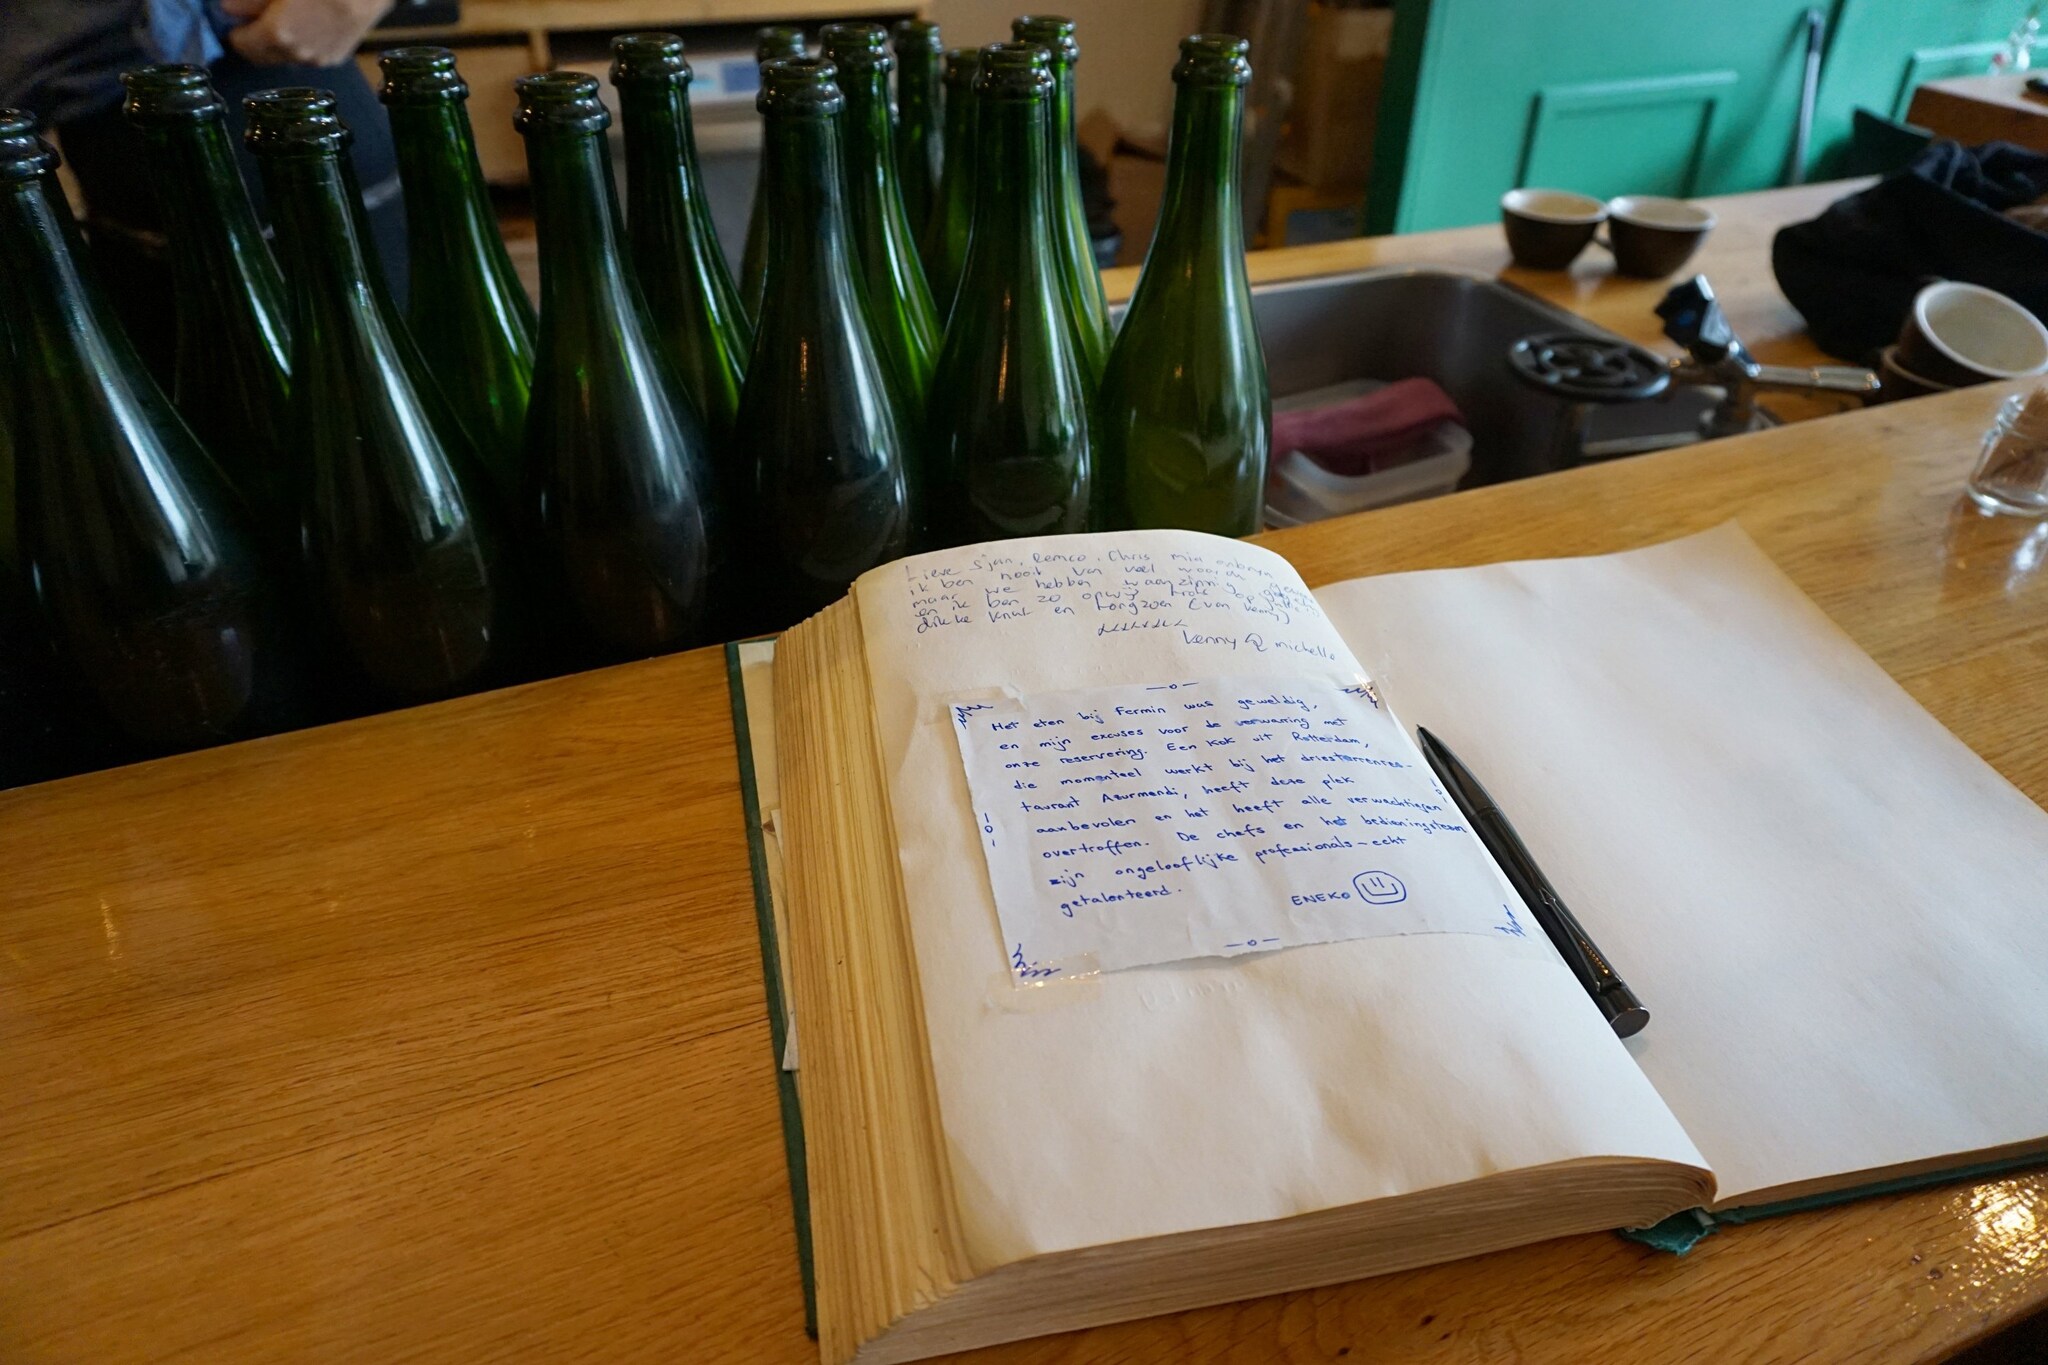 Lieve Sjan, Remco, Chris mijn
ik ben nooit van veel woorden
maar we hebben waanzinnig
en ik ben zo
dikke knuf en tongzoen (van kenny)
xxxxxxx
kenny & michelle
Het eten bij Fermin was geweldig,
en mijn excuses voor de verwarring met
onze reservering. Een kok uit Rotterdam,
die momenteel werkt bij het driesterrenres-
taurant Azurmendi, heeft deze plek
aanbevolen en het heeft alle verwachtingen
overtroffen. De chefs en het bedieningsteam
zijn ongelooflijke professionals – echt
getalenteerd.
ENEKO